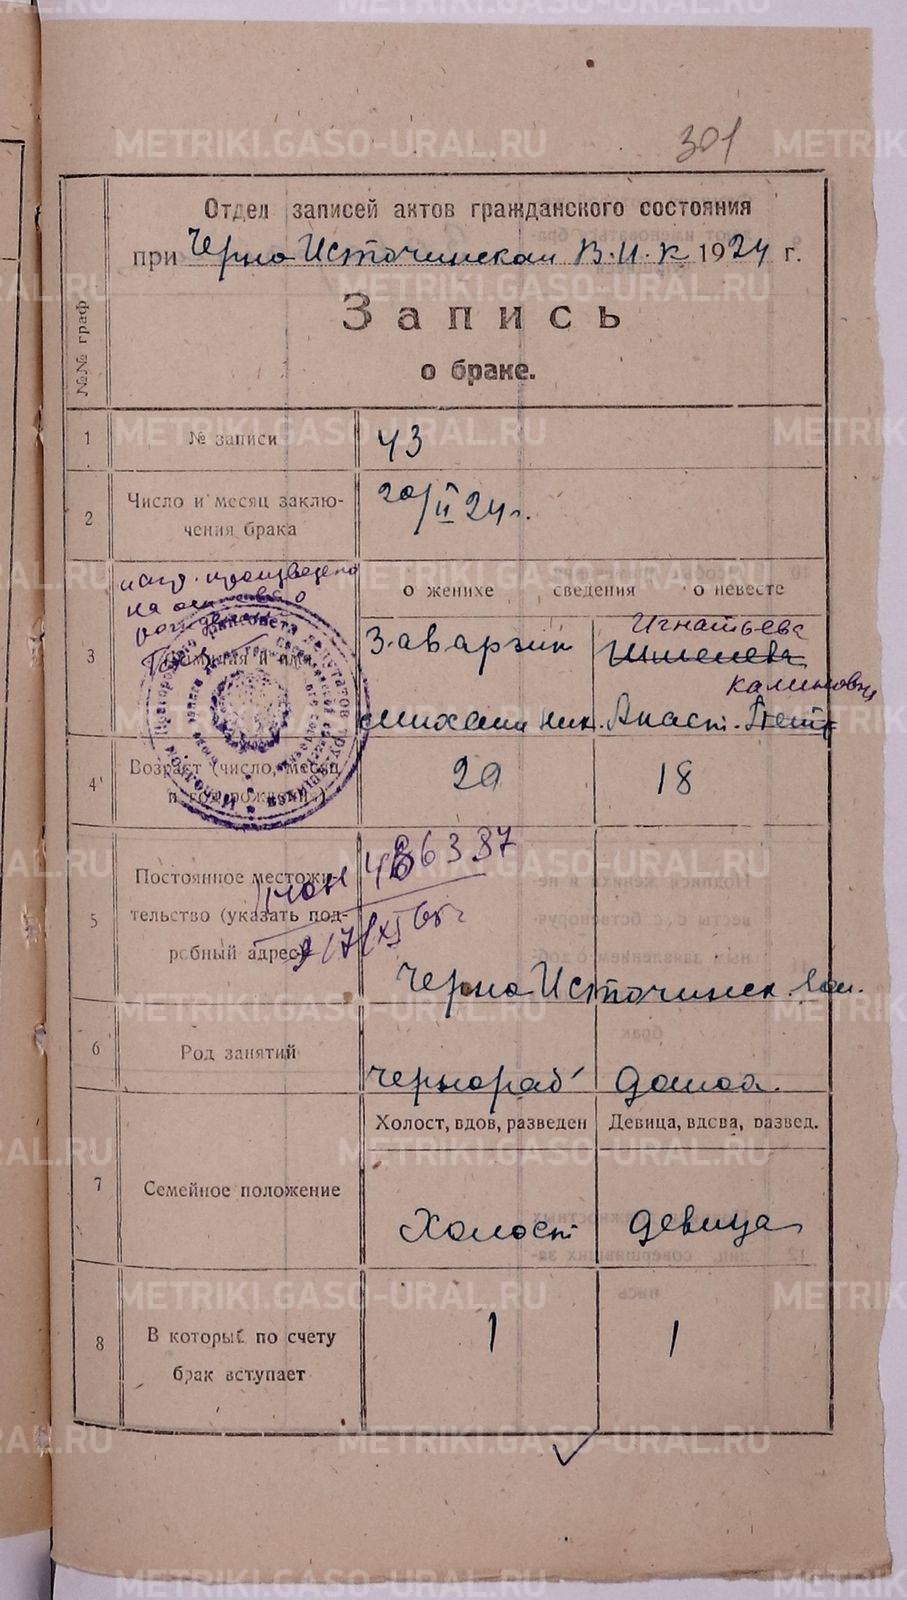 301
Отдел записей актов гражданского состояния
при Черно Источинском В.И.К 1924 г.
Запись
о браке.
№№ граф
1 № записи 43
2 Число и месяц заключения брака 20/II 24 г.
о женихе сведения о невесте
испр. произведено
на основ.
3 Фамилия и имя
Заварзин Игнатьева
Шмелева
Калиновна
Михаил Ник. Анаст. Петр
4 Возраст (число, месяц
и год рождения) 20 18
5 Постоянное местожи-
тельство (указать под-
робный адрес)
486387
Черно Источинск.
6 Род занятий чернораб домоа.
Холост, вдов, разведен Девица, вдова, развед.
7 Семейное положение Холост девица
8 В который по счету
брак вступает 1 1
METRIKI.GASO-URAL.RU